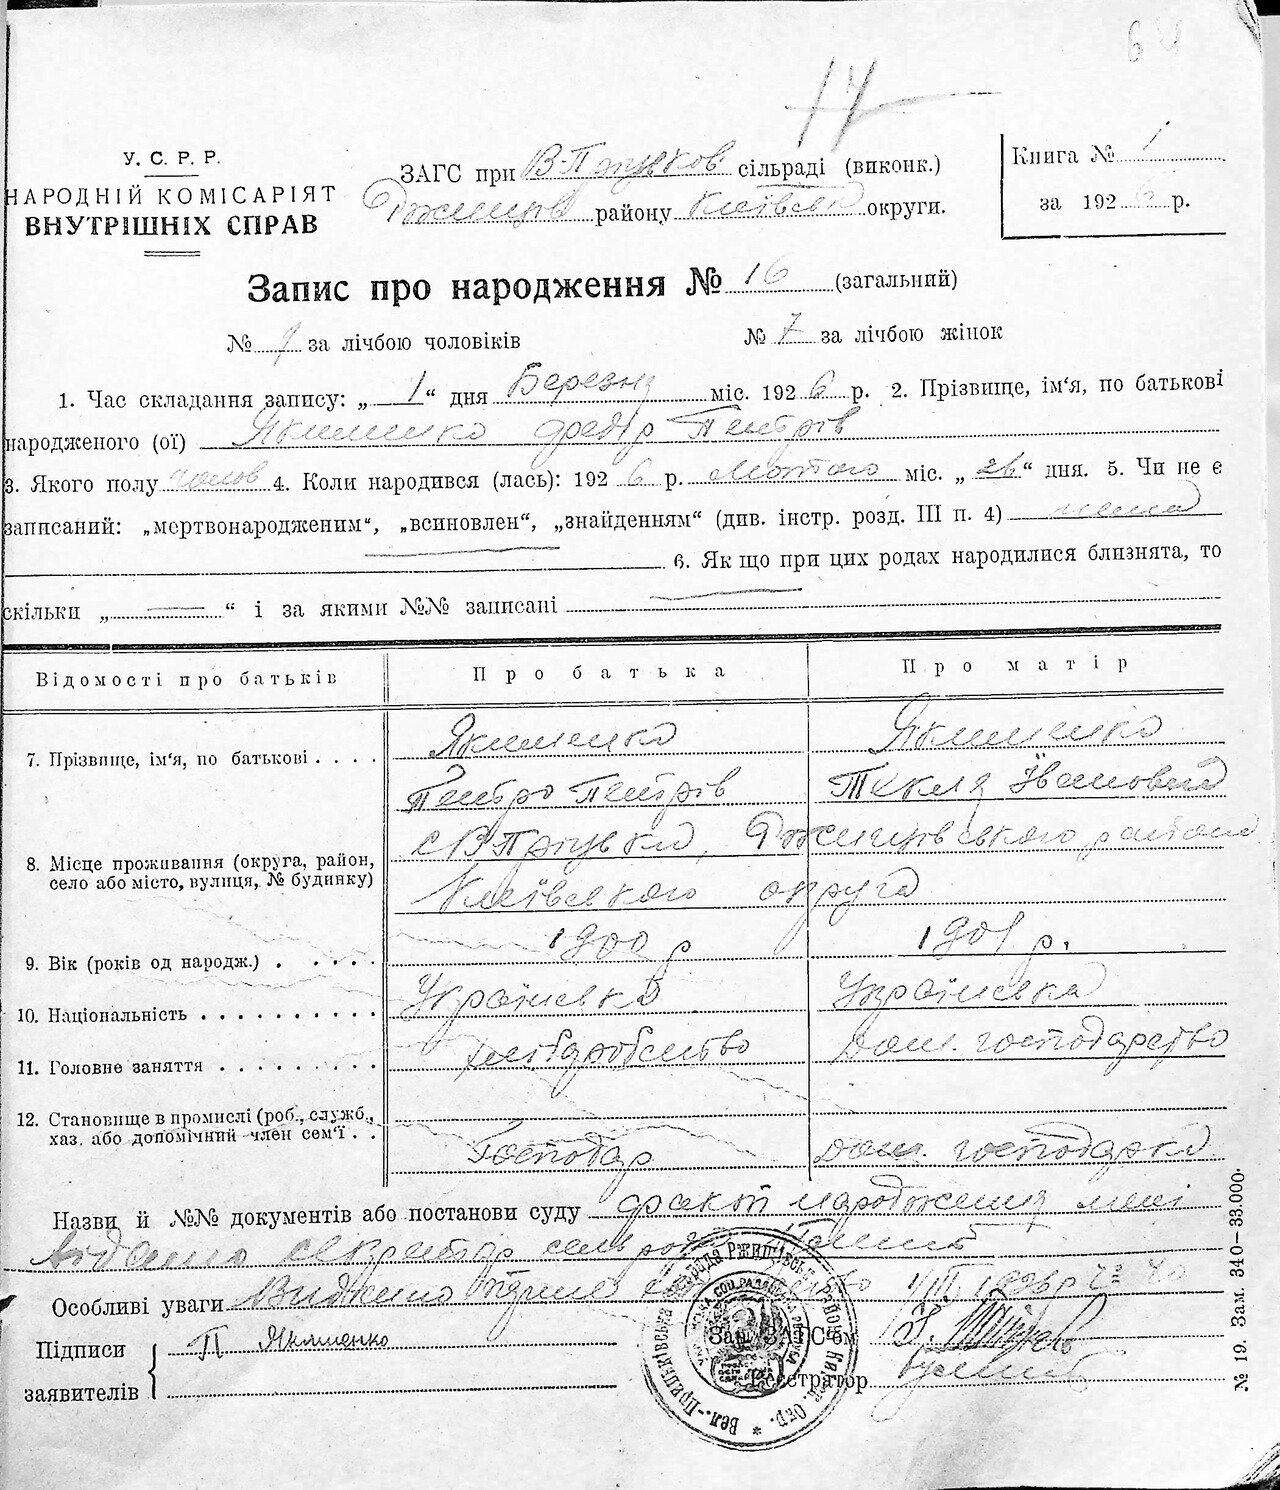 64
14
У. С. Р. Р.
НАРОДНІЙ КОМІСАРІЯТ
ВНУТРІШНІХ СПРАВ
ЗАГС при В-Прицьков сільраді (виконк.)
району Київськ округи.
Книга № 1
за 1926 р.
Запис про народження № 16 (загальний)
№ 9 за лічбою чоловіків № 7 за лічбою жінок
1. Час складання запису: „ 1 “ дня Березня міс. 1926 р. 2. Прізвище, ім‘я, по батькові
народженого (ої) Якименко Федір Петрів
3. Якого полу чолов 4. Коли народився (лась): 1926 р. Лютого міс. „ 26 “ дня. 5. Чи не є
записаний: „мертвонародженим“, „всиновлен“, „знайденням“ (див. інстр. розд. III п. 4) нема
6. Як що при цих родах народилися близнята, то
скільки „ “ і за якими №№ записані
Відомості про батьків Про батька Про матір
7. Прізвище, ім‘я, по батькові . . . . Якименко Якименко
Петро Петрів Текля Івановна
8. Місце проживання (округа, район,
село або місто, вулиця, № будинку)
с В Прицьки, района
Київського округа
9. Вік (років од народж.) . . . . . 1900 р 1901 р.
10. Національність . . . . . . . . . . Українська Українська
11. Головне заняття . . . . . . . . . хліборобство Дом. господарство
12. Становище в промислі (роб., служб.,
хаз. або допомічний член сем‘ї . .
Господар Дом. господарка
Назви й №№ документів або постанови суду факт народження мені
відомо секретар
Особливі уваги Видано 1/III 1926 р
Підписи
заявителів
П Якименко
Зав. ЗАГС‘ом
Реєстратор
№ 19. Зам. 340–33.000.